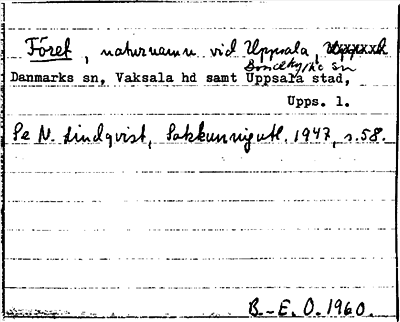 Föret, naturnamn vid Uppsala,
Bondkyrko sn
Danmarks sn, Vaksala hd samt Uppsala stad,
Upps. l.
Se N. Lindqvist, Sakkunnigutl. 1947, s. 58.
B.-E. O. 1960.